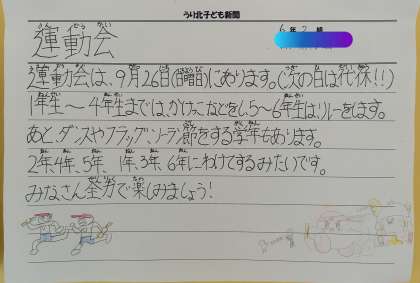 うり北子ども新聞
6年2組
運動会
運動会は、9月26日(土曜日)にあります。(次の日は代休!!)
1年生〜4年生までは、かけっこなどをし、5〜6年生はリレーをします。
あと、ダンスやフラッグ、ソーラン節をする学年もあります。
2年、4年、5年、1年、3年、6年にわけてするみたいです。
みなさん全力で楽しみましょう!